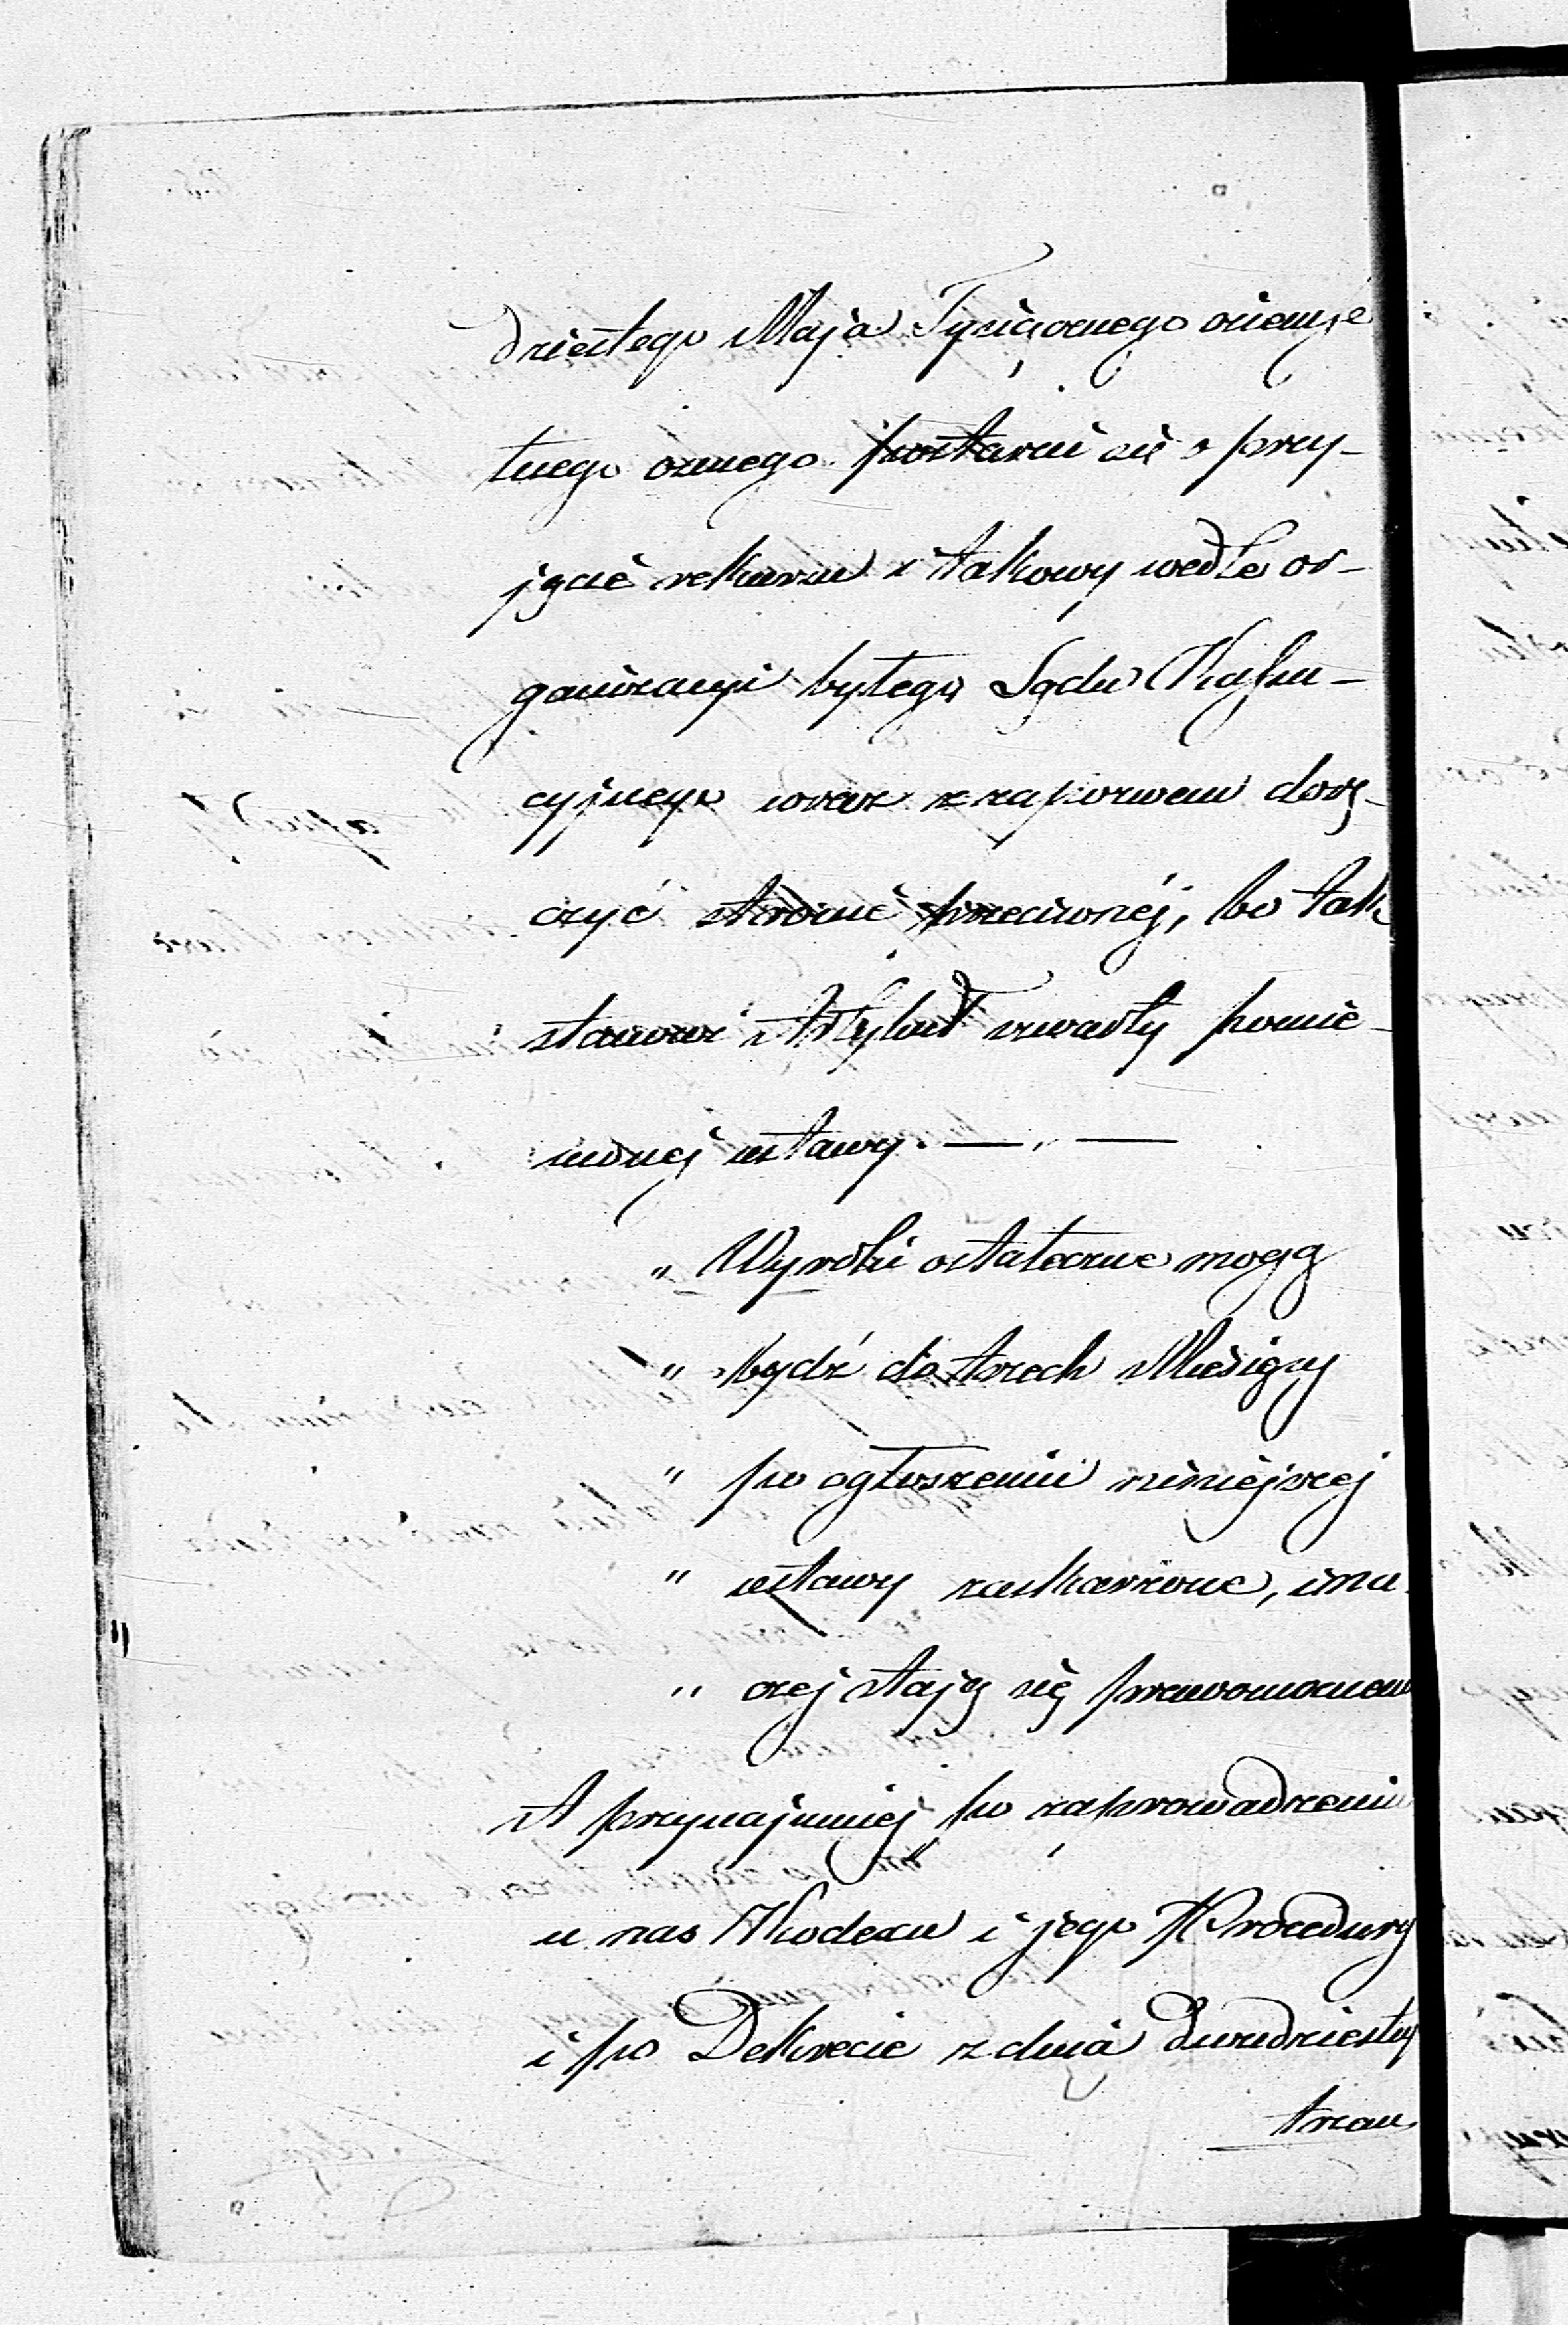 dziestego Maja Tysiącznego ośmse
tnego ósmego postarać się o przy-
jęcie rekursu i takowy wedle or-
ganizacyi byłego Sądu Kassa-
cyjnego wraz z zapozwem dorę-
czyć stronie przeciwnéj, bo tak
stanowi Artykuł czwarty pomie-
nionej ustawy. — „ —
„ Wyroki ostateczne mogą
„ bydź do trzech Miesięcy
„ po ogłoszeniu niniejszej
„ ustawy zaskarżone, ina
„ czej stają się prawomocnem
A przynajmniej po zaprowadzeniu
u nas Kodexu i jego Procedury
i po Dekrecie z dnia dwudziesty
trzeci